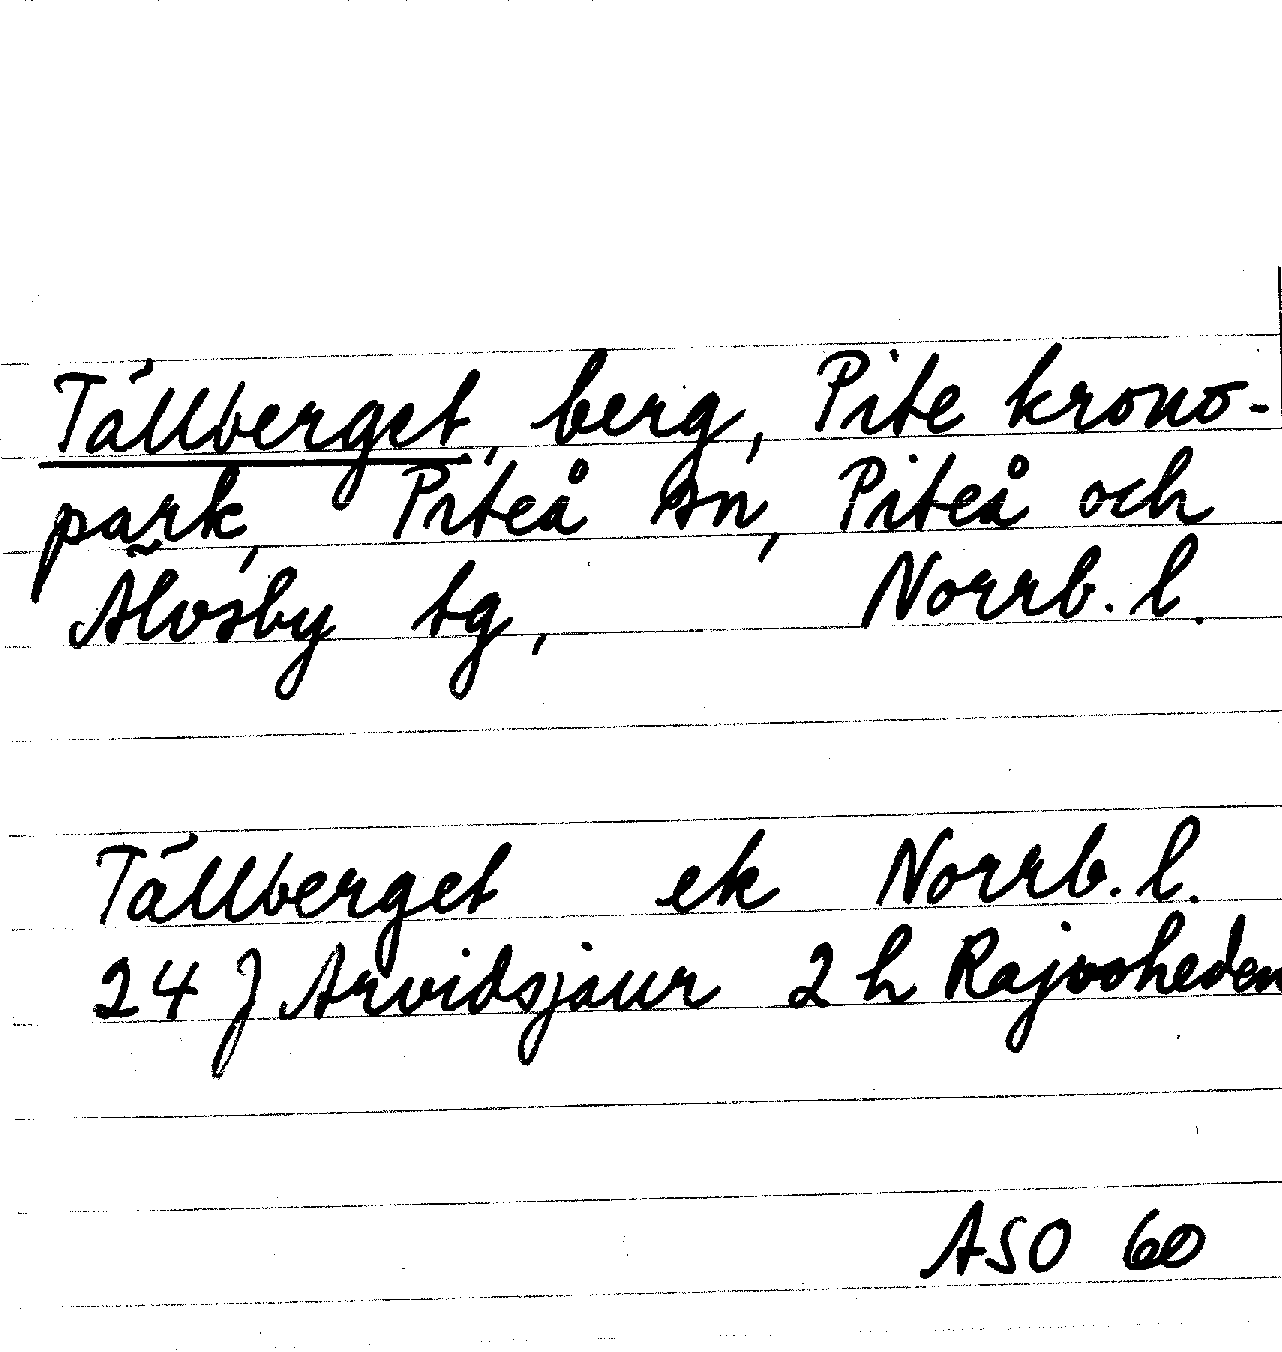 Tällberget, berg, Pite krono-
park, Piteå sn, Piteå och
Älvsby tg, Norrb. l.
Tällberget ek Norrb. l.
24 J Arvidsjaur 2 h Rajvoheden
ASO 60